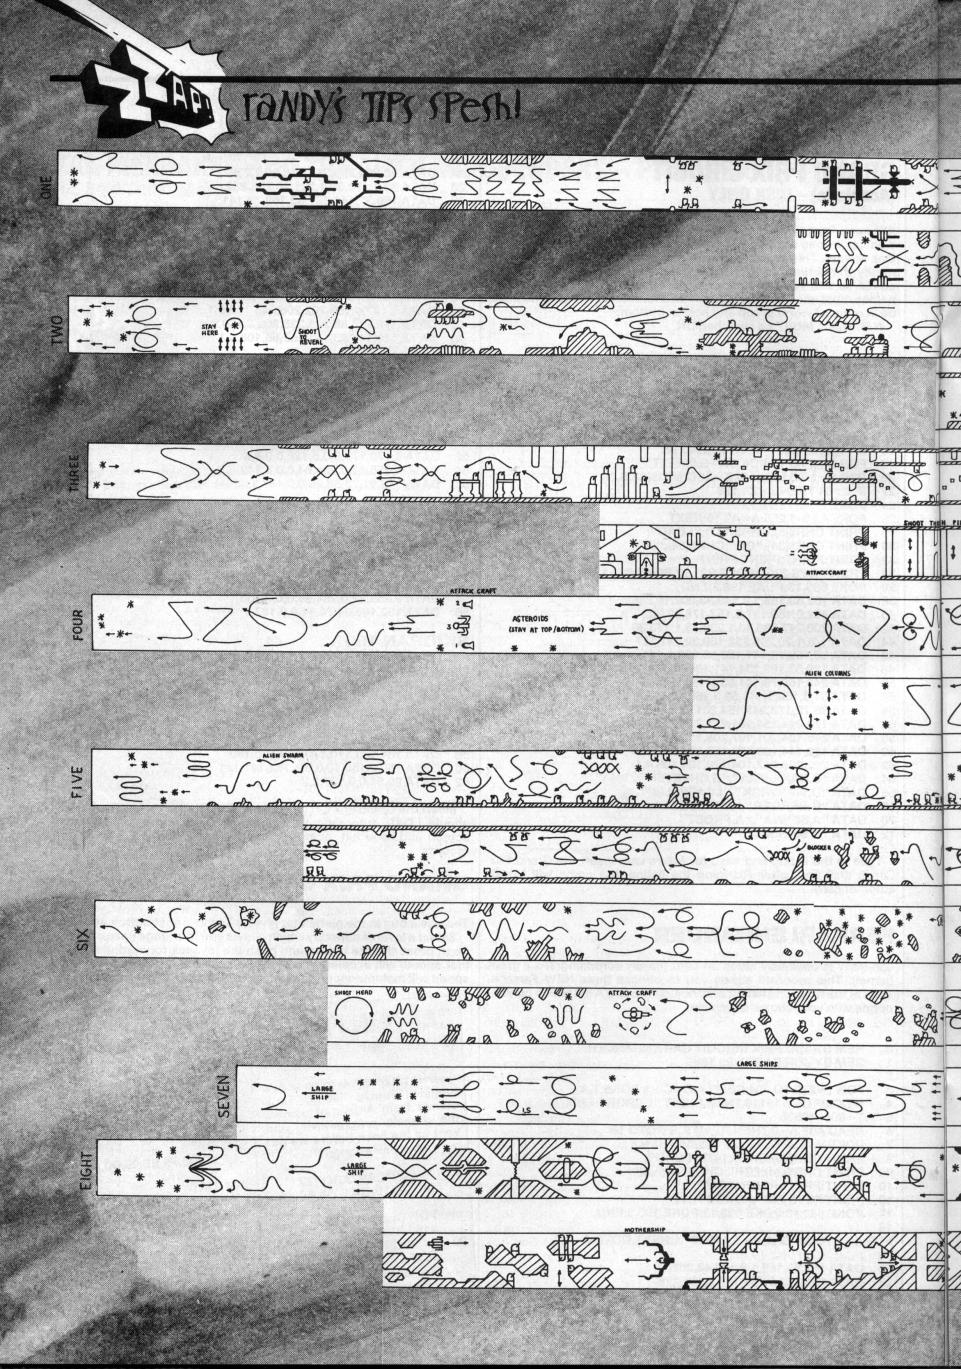 ZZAP!
RANDY'S TIPS SPESH!
ONE
TWO
STAY
HERE
SHOOT
TO
REVEAL
THREE
ATTACK CRAFT
FOUR
ATTACK CRAFT
2
3
1
ASTEROIDS
(STAY AT TOP/BOTTOM)
ALIEN COLUMNS
FIVE
ALIEN SWARM
BLOCKER
SIX
SHOOT HEAD
ATTACK CRAFT
SEVEN
LARGE
SHIP
LS
LARGE SHIPS
EIGHT
LARGE
SHIP
MOTHERSHIP